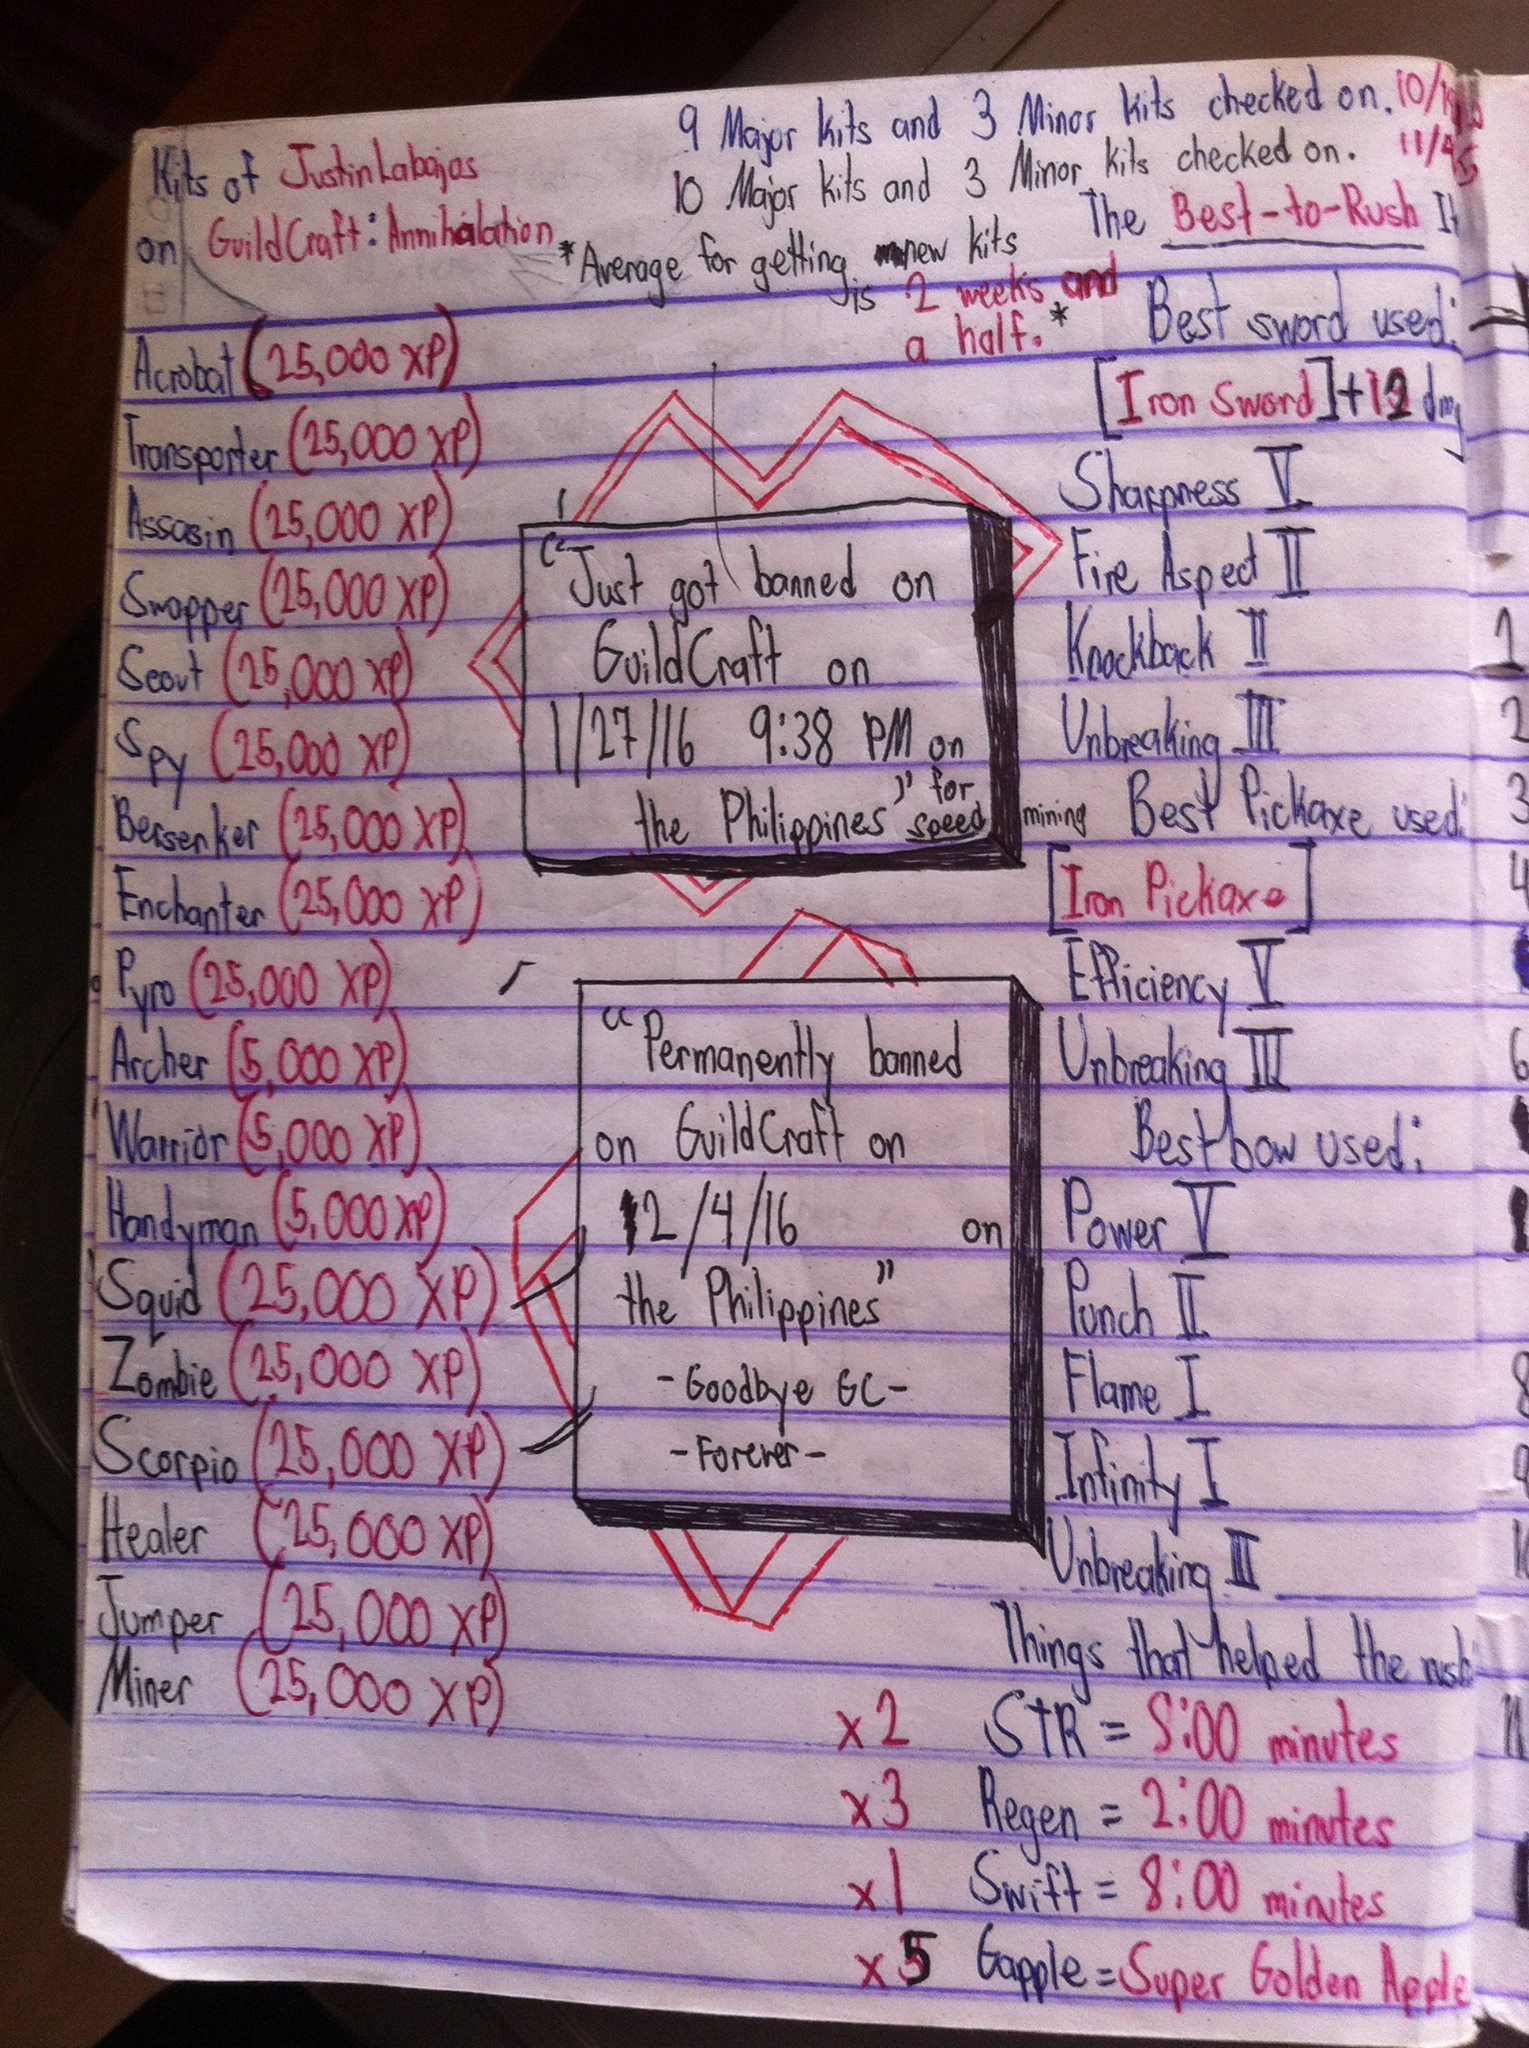 Kits of JustinLabajos
on GuildCraft: Annihalation
9 Major kits and 3 Minor kits checked on.
10 Major kits and 3 Minor kits checked on.
*Average for getting new kits
is 2 weeks and
a half.*
Acrobat (25,000 XP)
Transporter (25,000 XP)
Assasin (25,000 XP)
Swapper (25,000 XP)
Scout (25,000 XP)
Spy (25,000 XP)
Berserker (25,000 XP)
Enchanter (25,000 XP)
Pyro (25,000 XP)
Archer (5,000 XP)
Warrior (5,000 XP)
Handyman (5,000 XP)
Squid (25,000 XP)
Zombie (25,000 XP)
Scorpio (25,000 XP)
Healer (25,000 XP)
Jumper (25,000 XP)
Miner (25,000 XP)
"Just got banned on
GuildCraft on
1/27/16 9:38 PM on
the Philippines" for
speed mining
"Permanently banned
on GuildCraft on
12/4/16 on
the Philippines"
-Goodbye GC-
-Forever-
The Best-to-Rush
Best sword used:
[Iron Sword]+12 dmg
Sharpness V
Fire Aspect II
Knockback II
Unbreaking III
Best Pickaxe used:
[Iron Pickaxe]
Efficiency V
Unbreaking III
Best bow used:
Power V
Punch II
Flame I
Infinity I
Unbreaking III
Things that helped the rush:
x2 STR = 8:00 minutes
x3 Regen = 2:00 minutes
x1 Swift = 8:00 minutes
x5 Gapple = Super Golden Apple
1
2
3
4
6
8